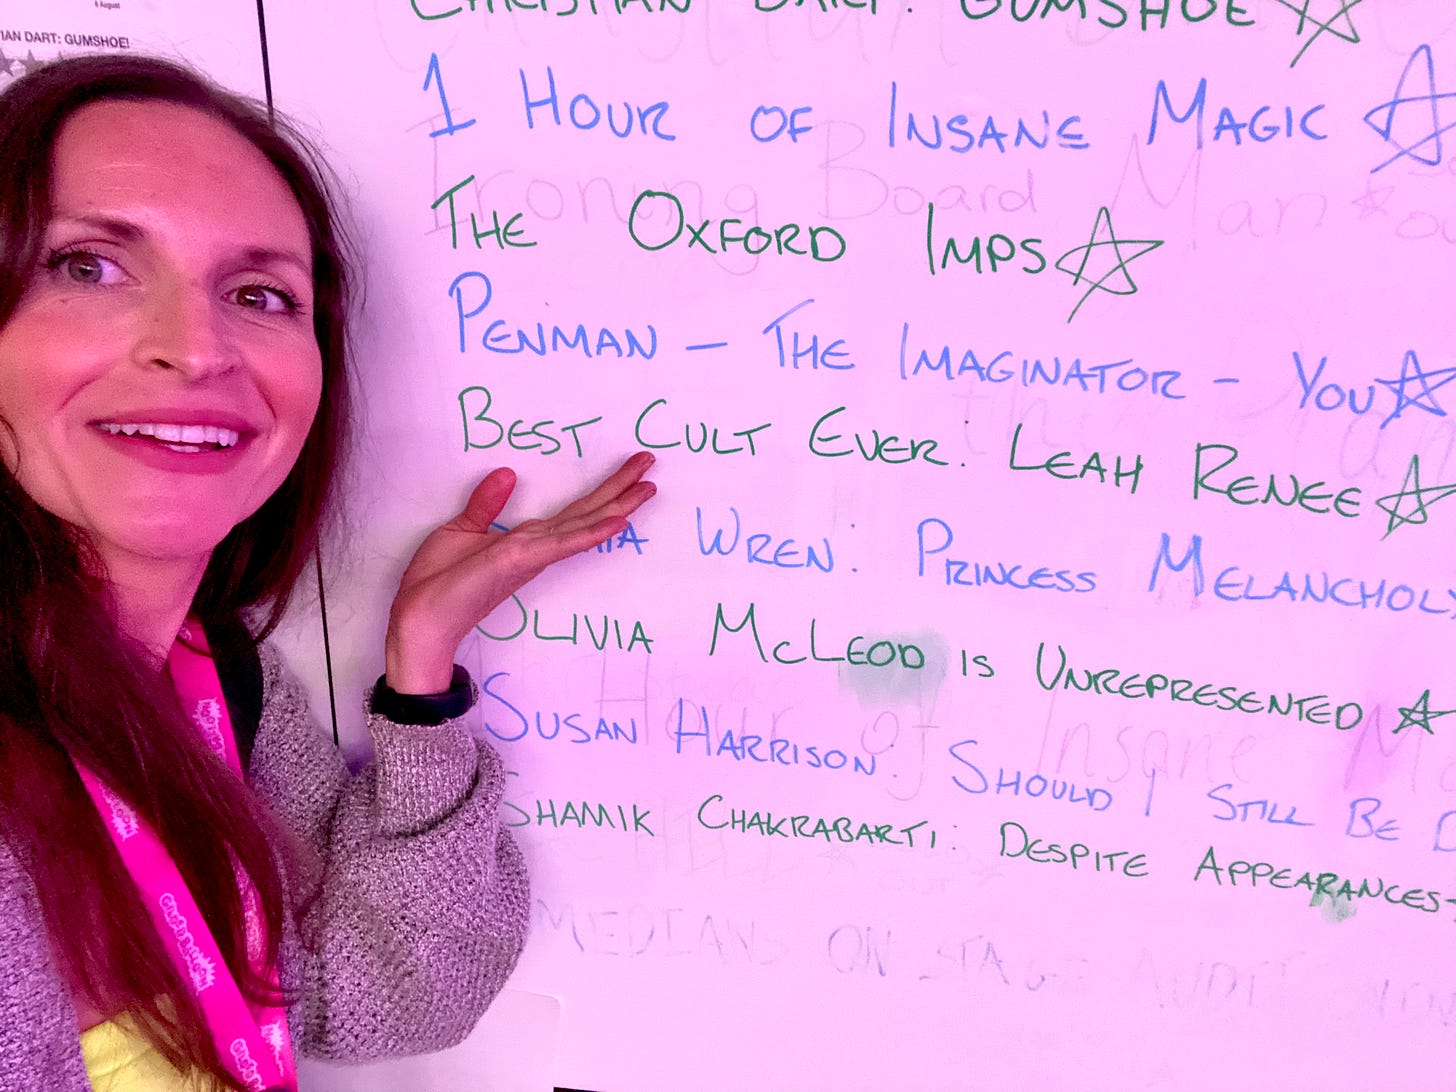 6 August
IAN DART: GUMSHOE!
CHRISTIAN DART: GUMSHOE
1 HOUR OF INSANE MAGIC
Ironing Board Man
THE OXFORD IMPS
PENMAN – THE IMAGINATOR – YOU
BEST CULT EVER: LEAH RENEE
WREN: PRINCESS MELANCHOLY
OLIVIA MCLEOD IS UNREPRESENTED
Hour of Insane
SUSAN HARRISON: SHOULD I STILL BE
SHAMIK CHAKRABARTI: DESPITE APPEARANCES
MEDIANS ON STAGE